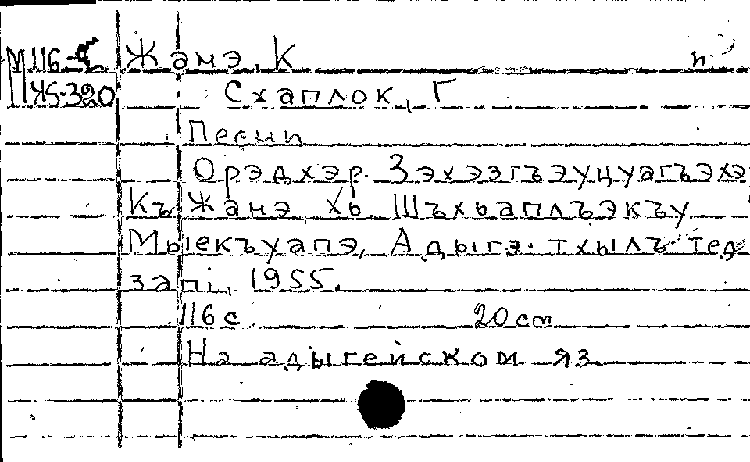 М116-5 Жанэ, К п
М45-320 Схаплок, Г
Песни
Орэдхэр. Зэхэзгъэуцуагъэхэ
Къ Жанэ, Хь Шъхьаплъэкъу
Мыекъуапэ, Адыгэ. тхылъ тед
запі, 1955.
116 с. 20 см
На адыгейском яз.